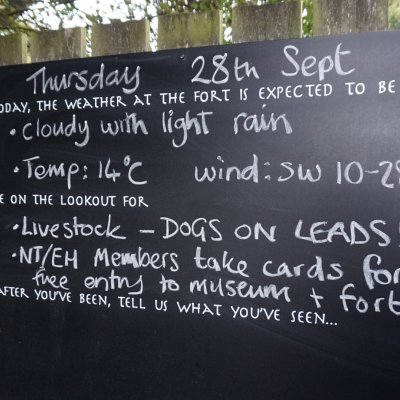 Thursday 28th Sept
ODAY, THE WEATHER AT THE FORT IS EXPECTED TO BE
• Cloudy with light rain
• Temp: 14°C wind: SW 10-28
E ON THE LOOKOUT FOR
• Livestock - DOGS ON LEADS!
• NT/EH Members take cards for
free entry to museum + fort
AFTER YOU'VE BEEN, TELL US WHAT YOU'VE SEEN...